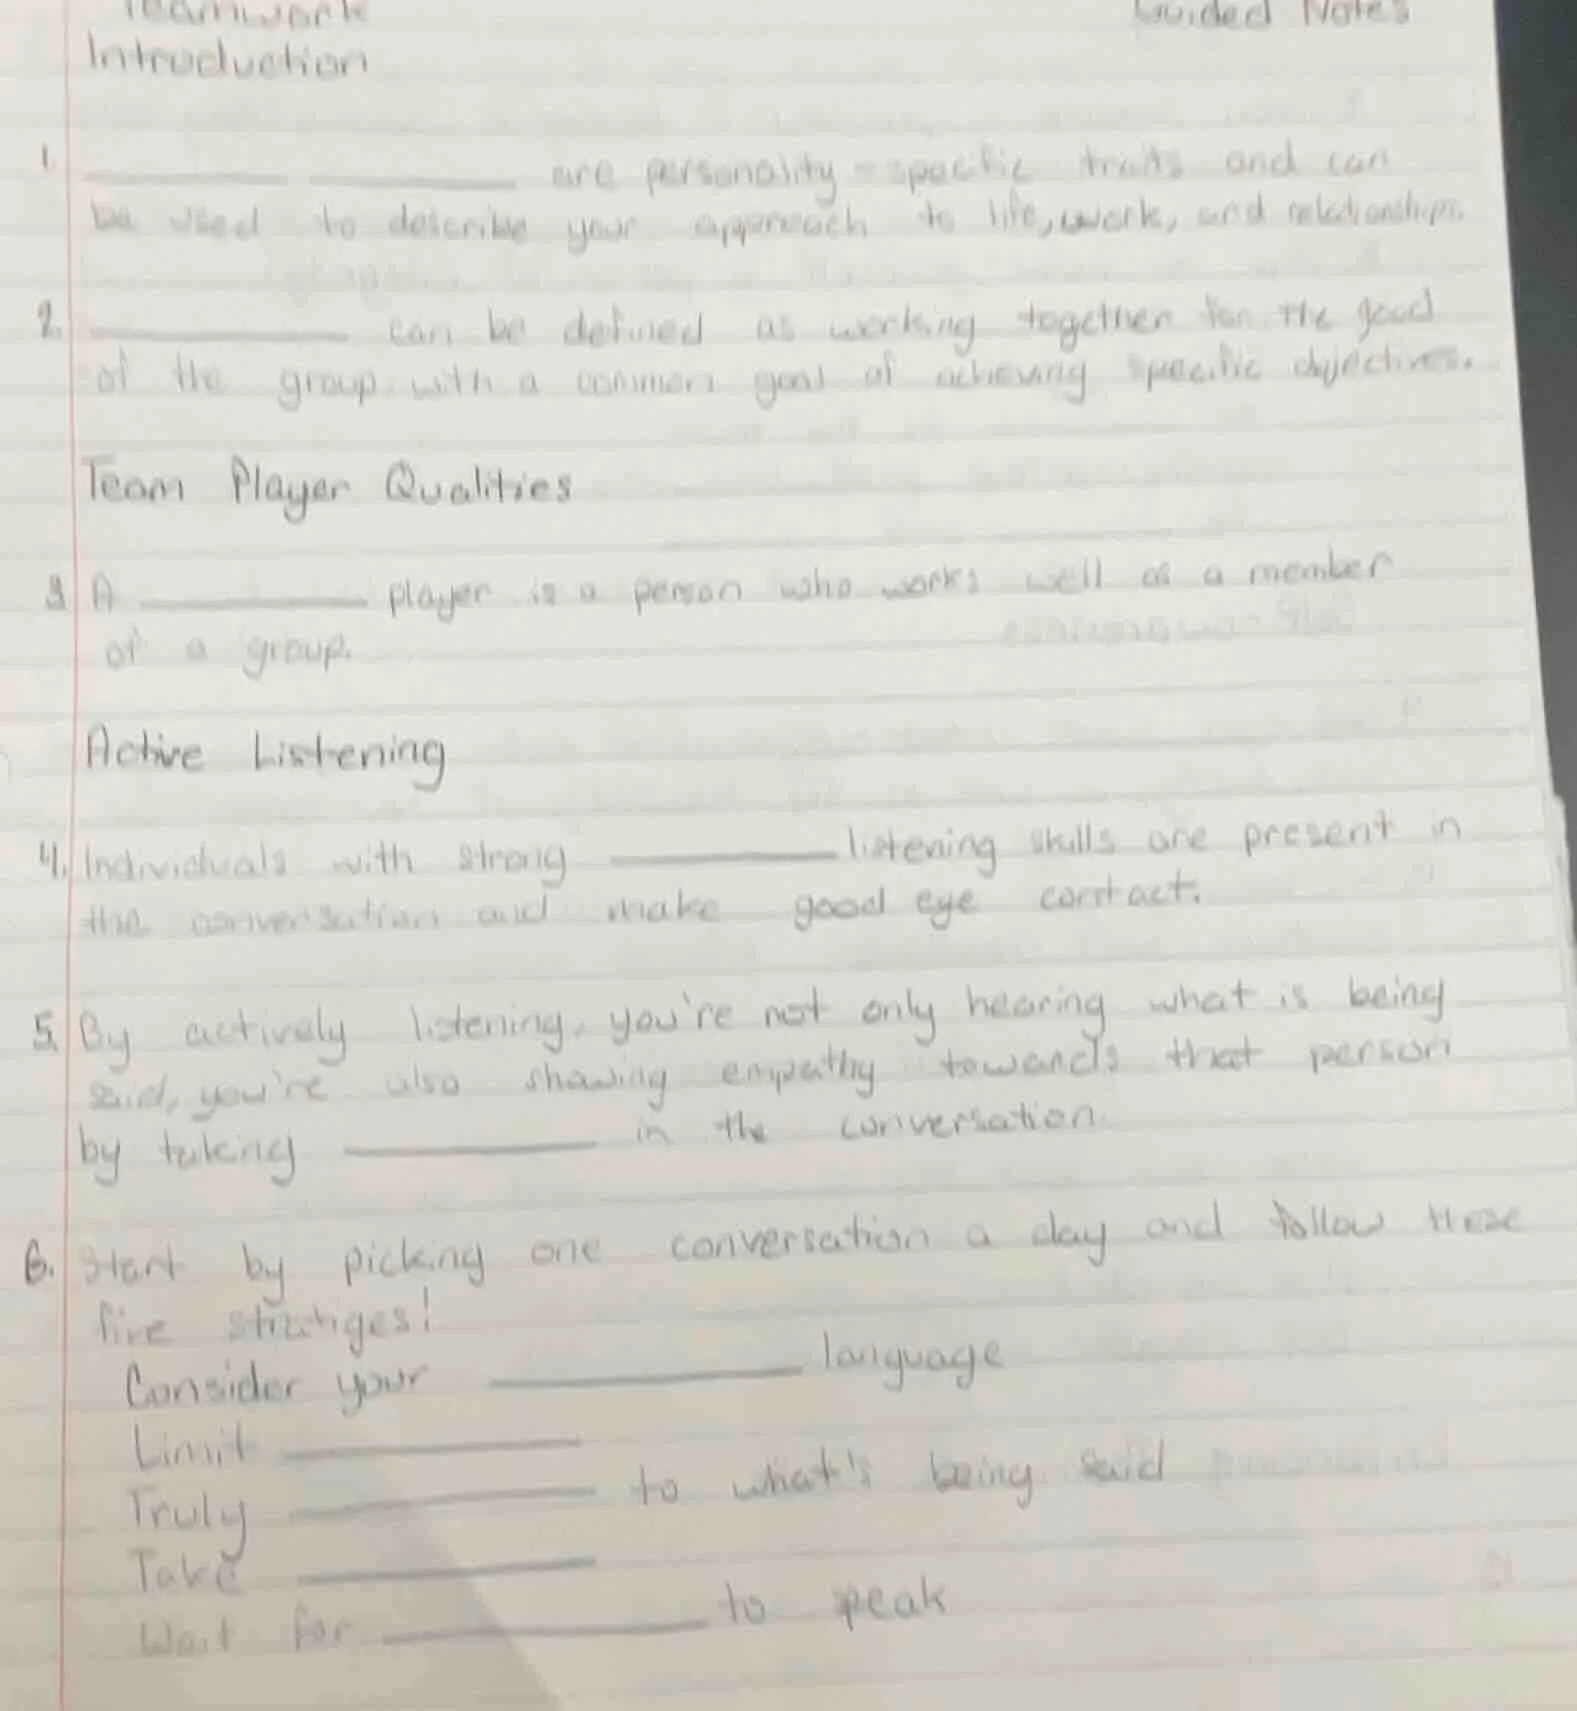 Teamwork Guided Notes
Introduction
1. ________ ________ are personality-specific traits and can
be used to describe your approach to life, work, and relationships.
2. ________ can be defined as working together for the good
of the group with a common goal of achieving specific objectives.
Team Player Qualities
3 A ________ player is a person who works well as a member
of a group.
Active Listening
4. Individuals with strong ________ listening skills are present in
the conversation and make good eye contact.
5. By actively listening, you're not only hearing what is being
said, you're also showing empathy towards that person
by taking ________ in the conversation.
6. Start by picking one conversation a day and follow these
five stratiges!
Consider your ________ language
Limit ________
Truly ________ to what's being said
Take ________
Wait for ________ to peak